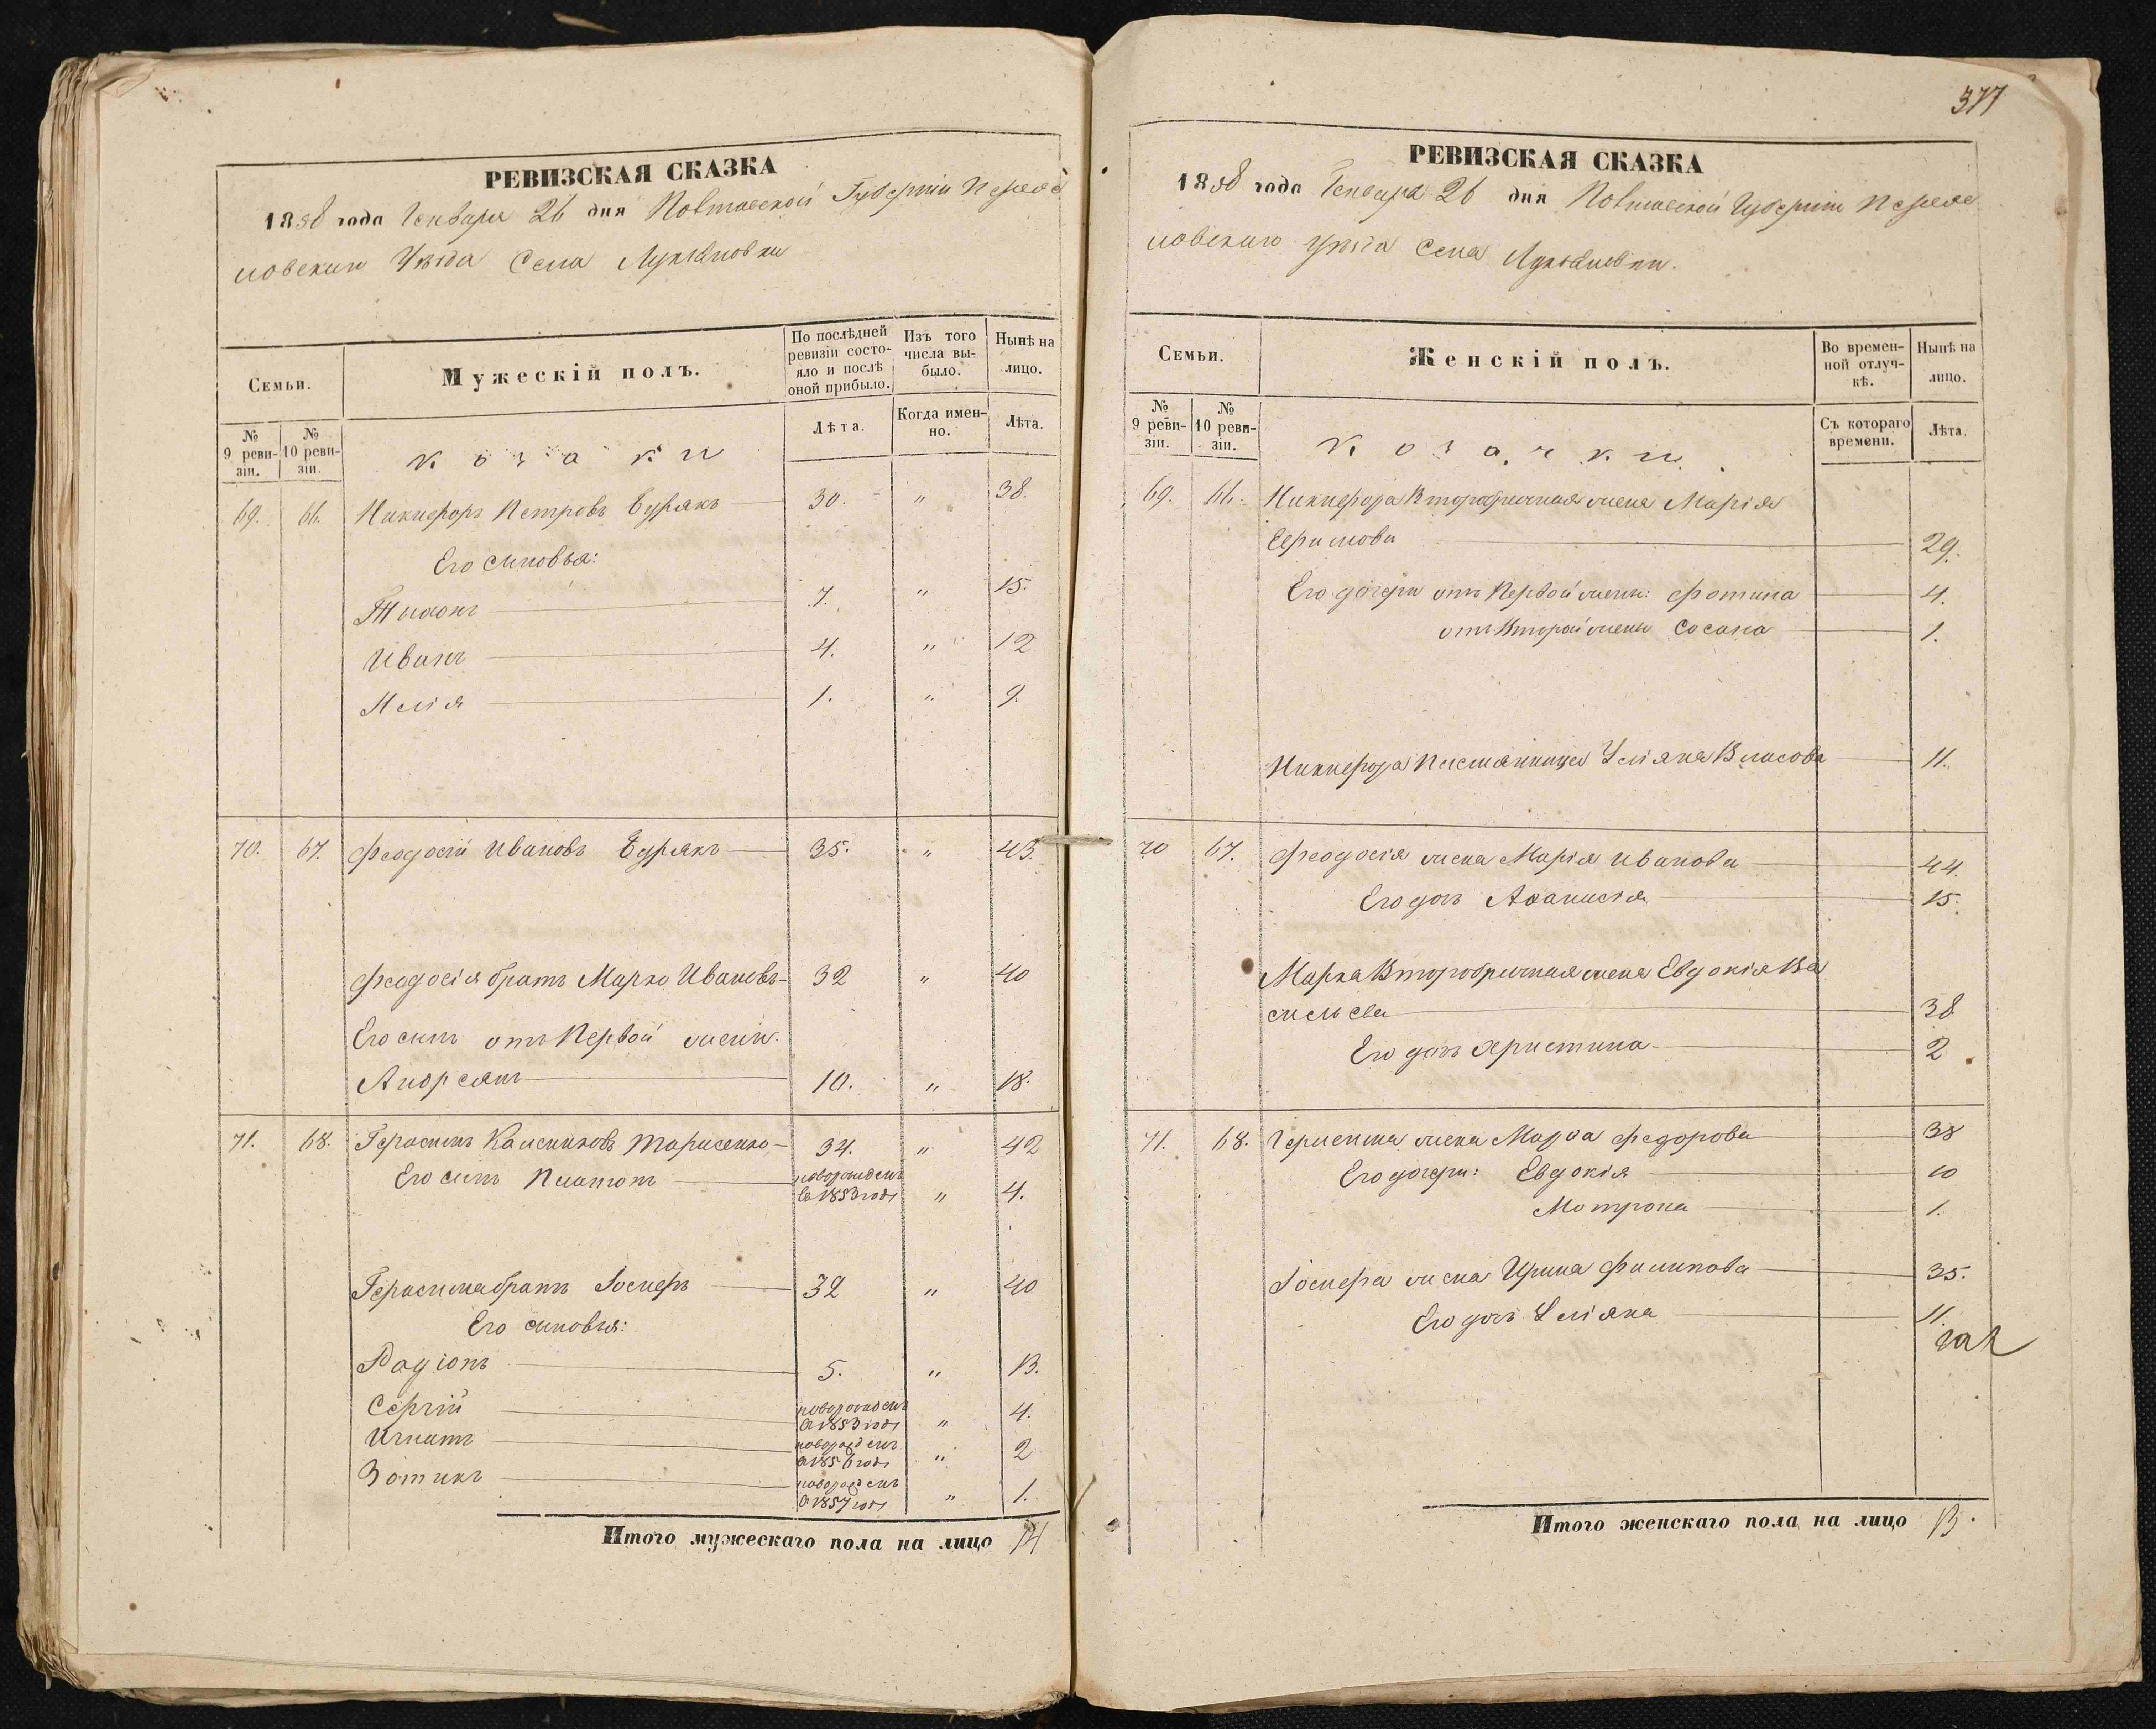 РЕВИЗСКАЯ СКАЗКА
1858 года Генваря 26 дня Полтавской Губерніи Перея
ловскаго Уѣзда Села Лукъяновки
Семьи.
Мужескій полъ.
По послѣдней ревизіи состояло и послѣ оной прибыло.
Изъ того числа выбыло.
Нынѣ на лицо.
№ 9 ревизіи.
№ 10 ревизіи.
козаки
Лѣта.
Когда именно.
Лѣта.
69. 66. Никифоръ Петровъ Бурякъ 30. " 38.
Его сыновья:
Тихонъ 7. " 15.
Иванъ 4. " 12
Илія 1. " 9.
70. 67. Феодосій Ивановъ Бурякъ 35. " 43.
Феодосія братъ Марко Ивановъ 32 " 40
Его сынъ отъ Первой жены
Андреянъ 10. " 18.
71. 68. Герасимъ Тарасенко 34. " 42
Его сынъ Платонъ новорожденъ в 1853 годѣ " 4.
Герасима братъ Іосифъ 32 " 40
Его сыновья:
Радіонъ 5. " 13.
Сергій новорожденъ в 1853 годѣ " 4.
Игнатъ новорожденъ в 1856 годѣ " 2
Зотикъ новорожденъ в 1857 годѣ " 1.
Итого мужескаго пола на лицо 14
377
РЕВИЗСКАЯ СКАЗКА
1858 года Генваря 26 дня Полтавской Губерніи Перея
ловскаго уѣзда Села Лукъяновки.
Семьи.
Женскій полъ.
Во временной отлучкѣ.
Нынѣ на лицо.
№ 9 ревизіи.
№ 10 ревизіи.
козачки.
Съ котораго времени.
Лѣта.
69. 66. Никифора Второбрачная жена Марія
Ефимова 29.
Его дочери отъ Первой жены: Фотина 4.
отъ Второй жены Сосана 1.
Никифора Племянница Уліяна Власова 11.
70 67. Феодосія жена Марія Иванова 44.
Его дочь Афанасія 15.
Марка Второбрачная жена Евдокія Ва
сильева 38
Его дочь Христина 2
71. 68. Герасима жена Марфа Федорова 38
Его дочери: Евдокія 10
Мотрона 1.
Іосифа жена Ирина Филипова 35.
Его дочь Уліяна 11.
Итого женскаго пола на лицо 13.